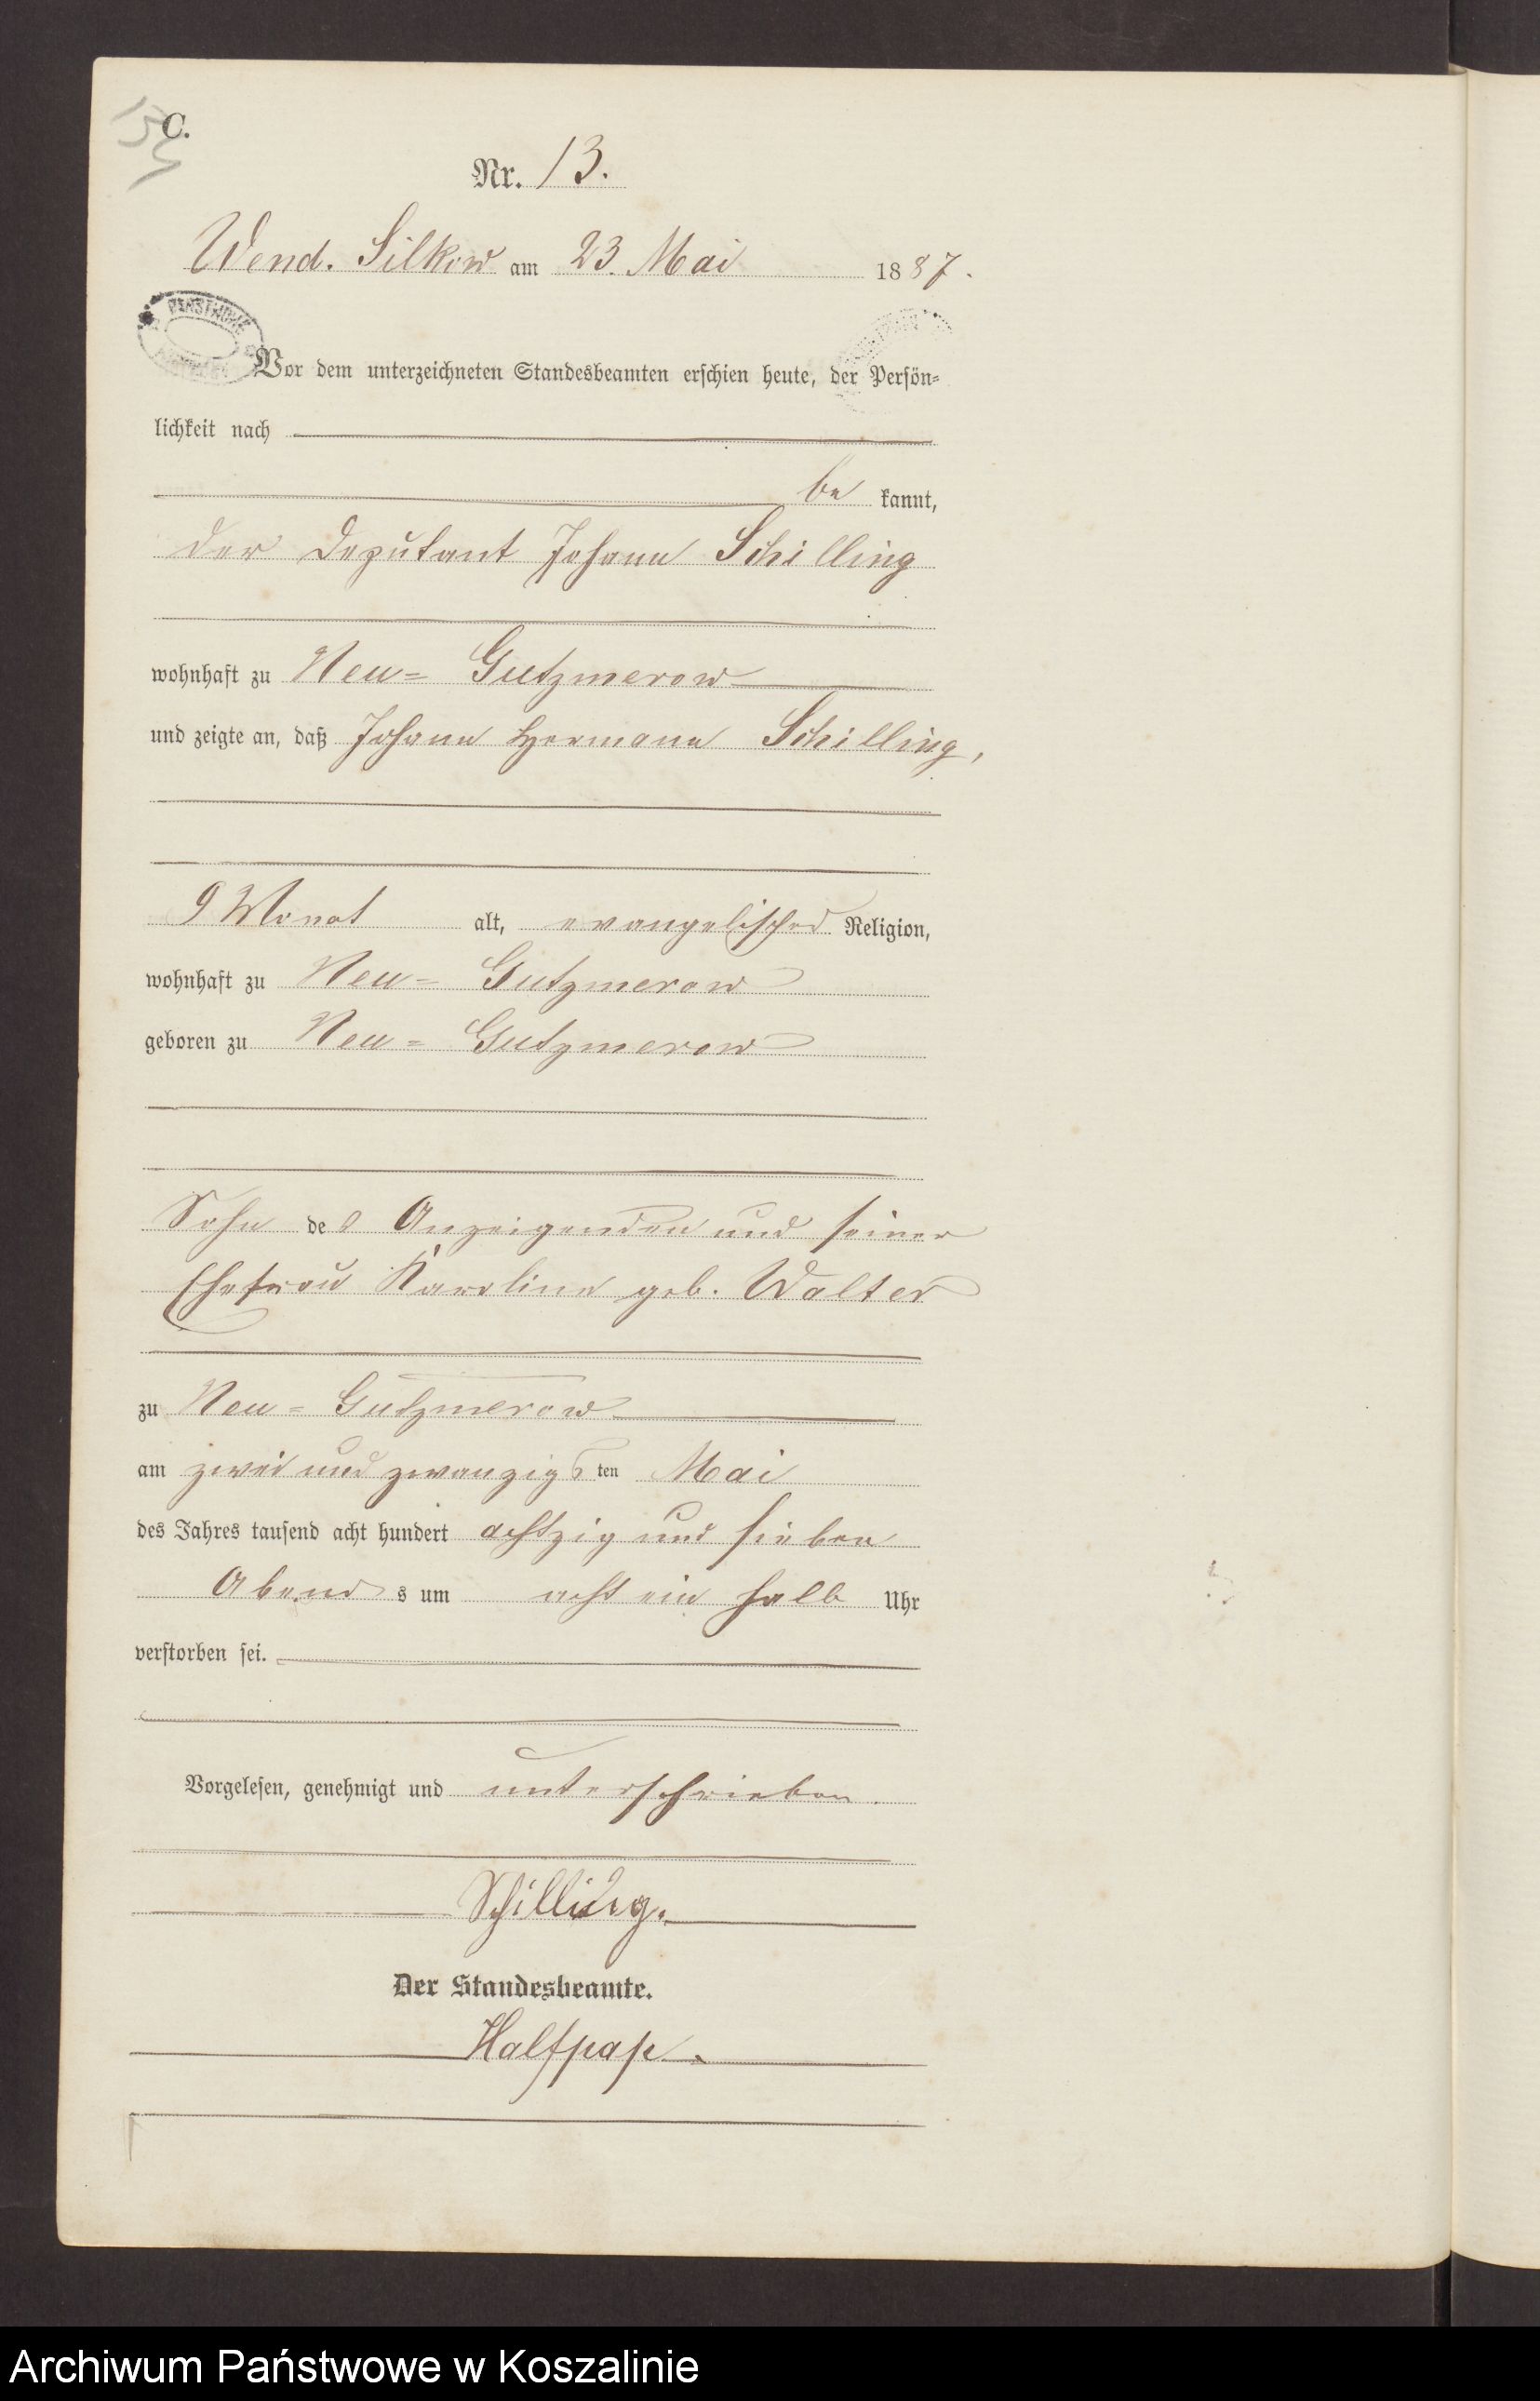 C.
Nr. 13.
Wend. Silkow am 23. Mai 1887.
Vor dem unterzeichneten Standesbeamten erschien heute, der Persön=
lichkeit nach
be kannt,
der Deputant Johann Schilling
wohnhaft zu Neu= Gutzmerow
und zeigte an, daß Johann Hermann Schilling,
9 Monat alt, evangelischer Religion,
wohnhaft zu Neu= Gutzmerow
geboren zu Neu= Gutzmerow
Sohn des Anzeigenden und seiner
Ehefrau Karoline geb. Walter
zu Neu= Gutzmerow
am zwei und zwanzigsten Mai
des Jahres tausend acht hundert achtzig und sieben
Abends um acht ein halb Uhr
verstorben sei.
Vorgelesen, genehmigt und unterschrieben.
Schilling.
Der Standesbeamte.
Halfpap.
Archiwum Państwowe w Koszalinie